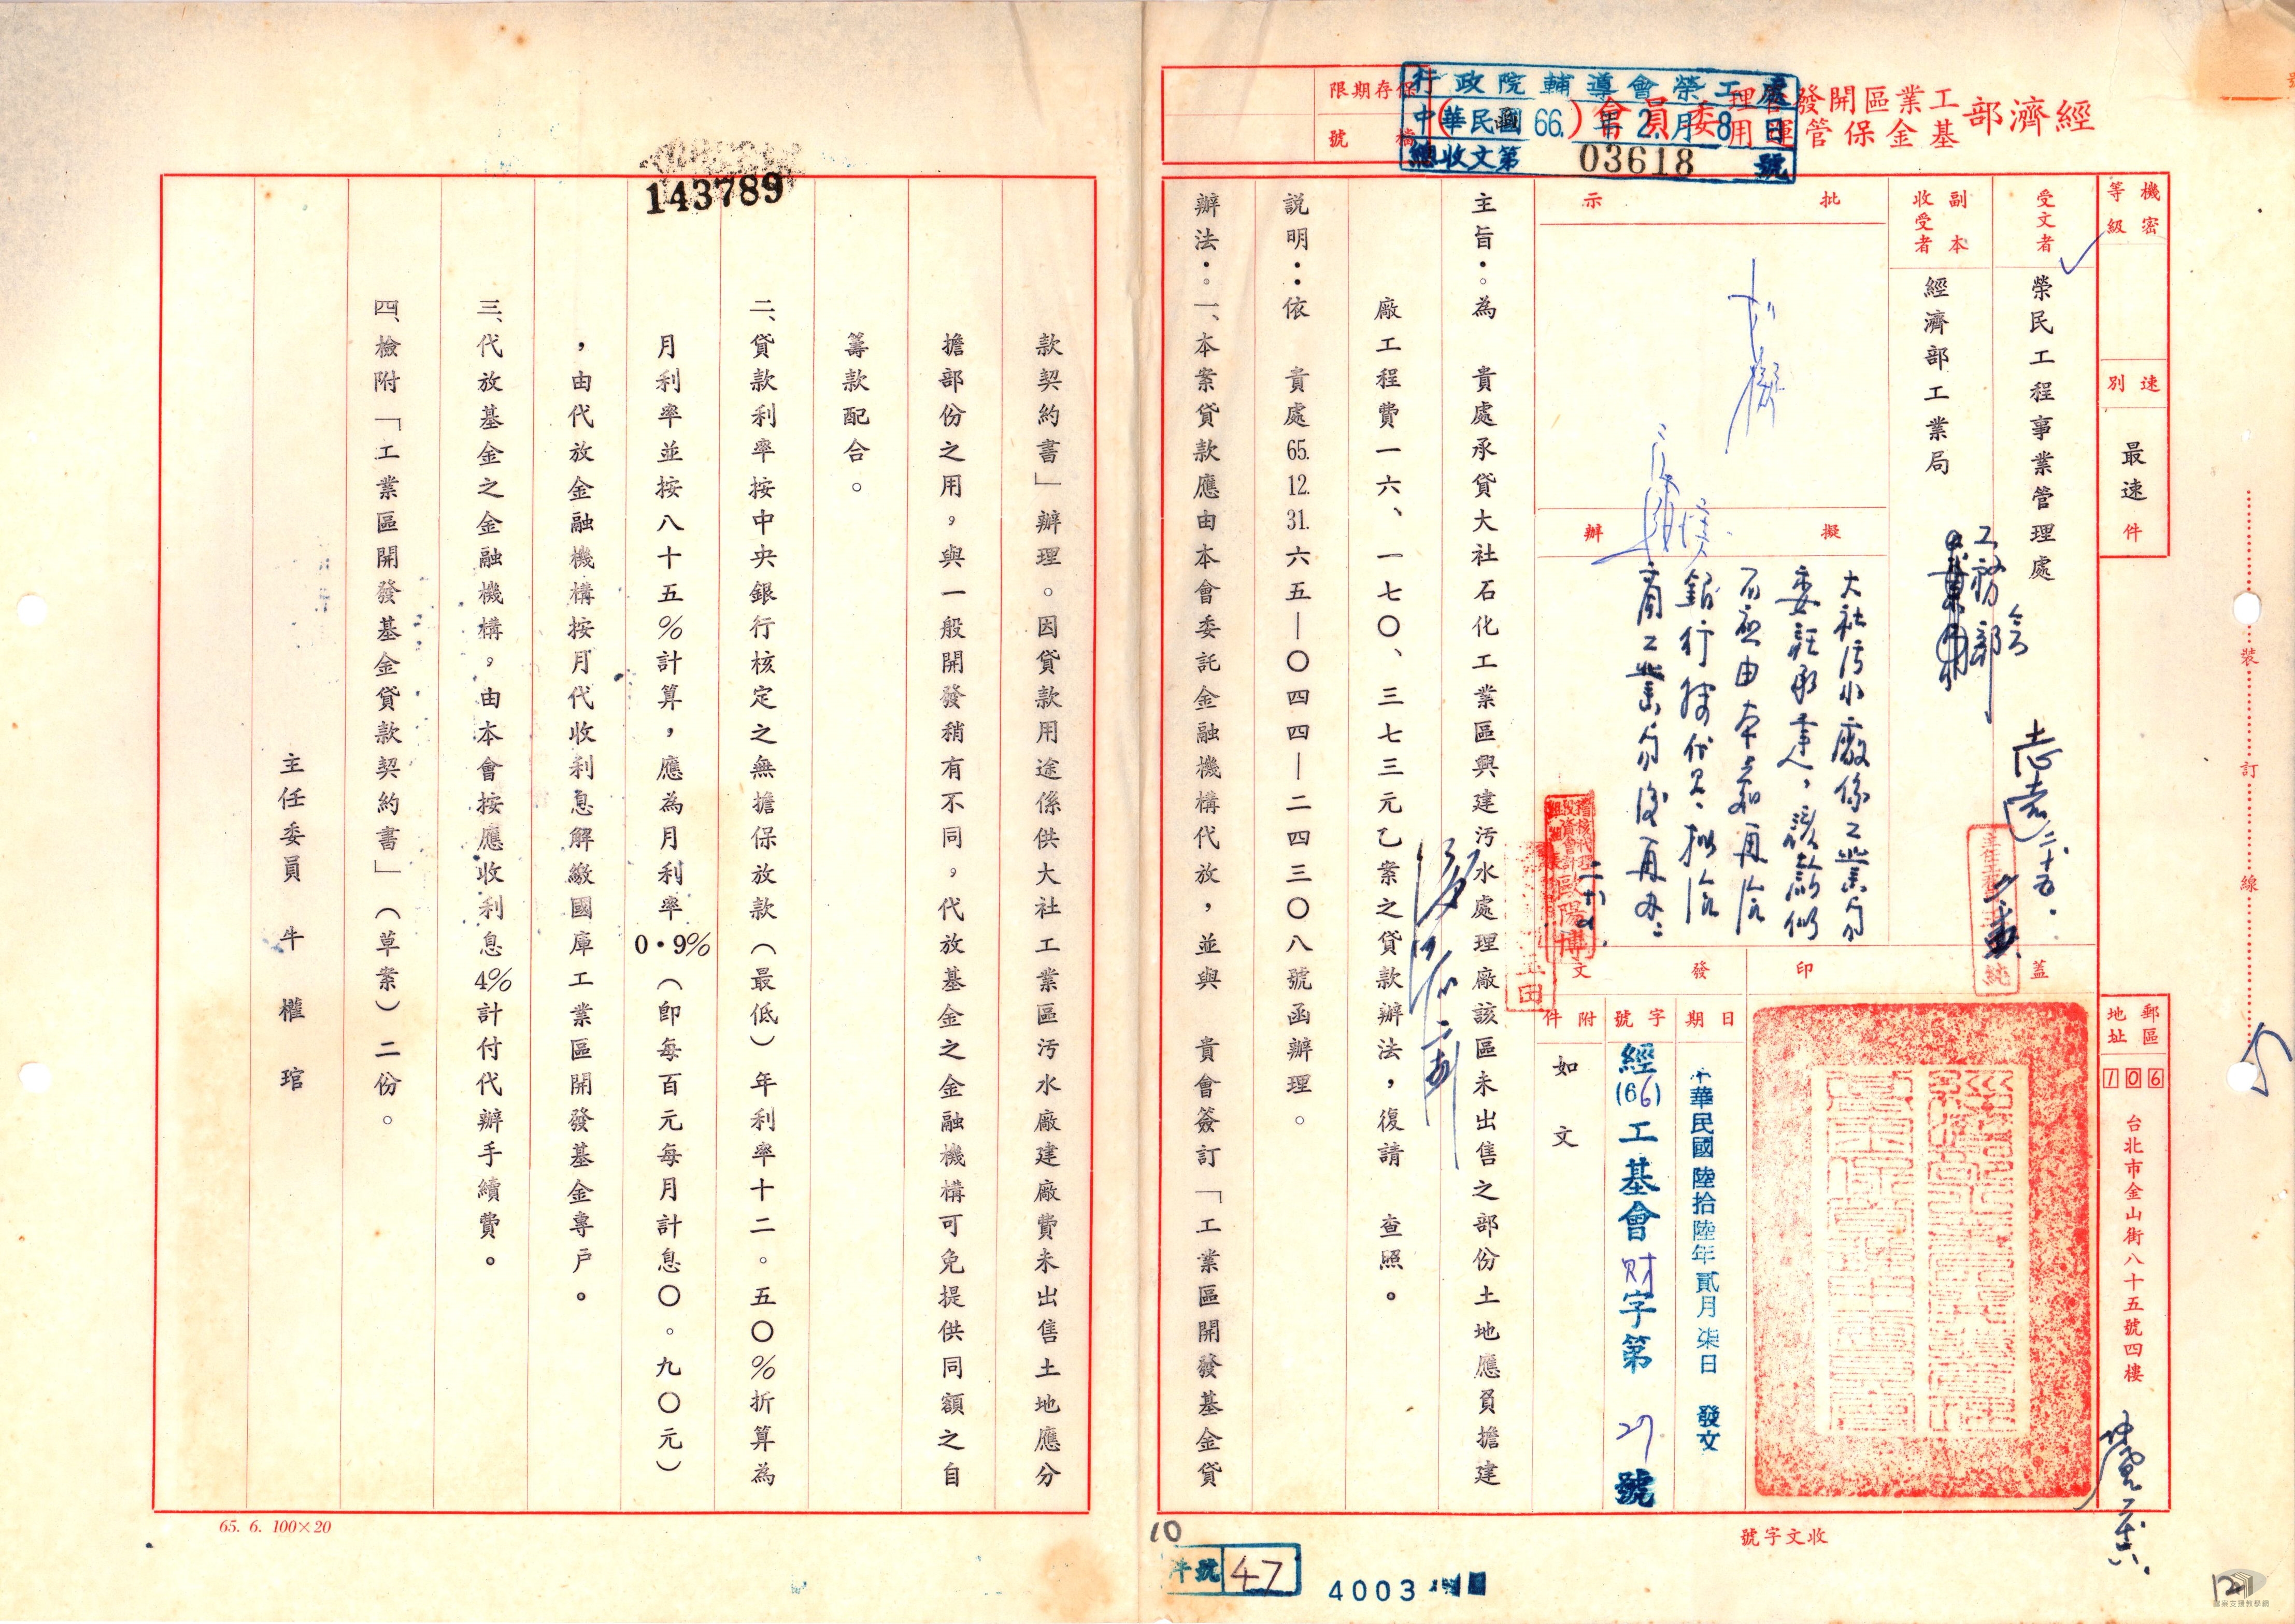 經濟部工業區開發管理基金保管運用委員會（函）
保存期限
檔號
行政院輔導會榮工處
中華民國66.年2.月8日
總收文第03618號
機密等級
速別
最速件
郵區
地址
106
台北市金山街八十五號四樓
受文者
榮民工程事業管理處
副本收受者
經濟部工業局
工務部
批示
擬辦
大社污水廠係工業局
委託承建，該款似
銀行
蓋印
發文
日期
中華民國陸拾陸年貳月柒日發文
字號
經(66)工基會財字第27號
附件
如文
主旨：為　貴處承貸大社石化工業區興建污水處理廠該區未出售之部份土地應負擔建
廠工程費一六、一七〇、三七三元乙案之貸款辦法，復請　查照。
說明：依　貴處65.12.31.六五—〇四四—二四三〇八號函辦理。
辦法：一、本案貸款應由本會委託金融機構代放，並與　貴會簽訂「工業區開發基金貸
款契約書」辦理。因貸款用途係供大社工業區污水廠建廠費未出售土地應分
擔部份之用，與一般開發稍有不同，代放基金之金融機構可免提供同額之自
籌款配合。
二、貸款利率按中央銀行核定之無擔保放款（最低）年利率十二。五〇％折算為
月利率並按八十五％計算，應為月利率0·9％（即每百元每月計息〇。九〇元）
，由代放金融機構按月代收利息解繳國庫工業區開發基金專戶。
三、代放基金之金融機構，由本會按應收利息4％計付代辦手續費。
四、檢附「工業區開發基金貸款契約書」（草案）二份。
主任委員　牛權琯
143789
裝
訂
線
收文字號
65. 6. 100×20
10
件號 47
4003